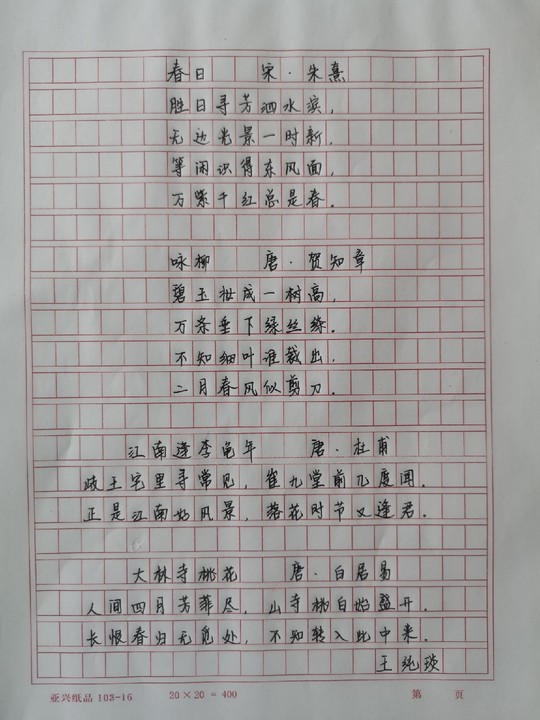 春日 宋·朱熹
胜日寻芳泗水滨，
无边光景一时新，
等闲识得东风面，
万紫千红总是春．
咏柳 唐·贺知章
碧玉妆成一树高，
万条垂下绿丝绦．
不知细叶谁裁出，
二月春风似剪刀．
江南逢李龟年 唐·杜甫
岐王宅里寻常见，崔九堂前几度闻．
正是江南好风景，落花时节又逢君．
大林寺桃花 唐·白居易
人间四月芳菲尽，山寺桃白始盛开．
长恨春归无觅处，不知转入此中来．
王纯琰
亚兴纸品 103-16 20×20=400 第 页